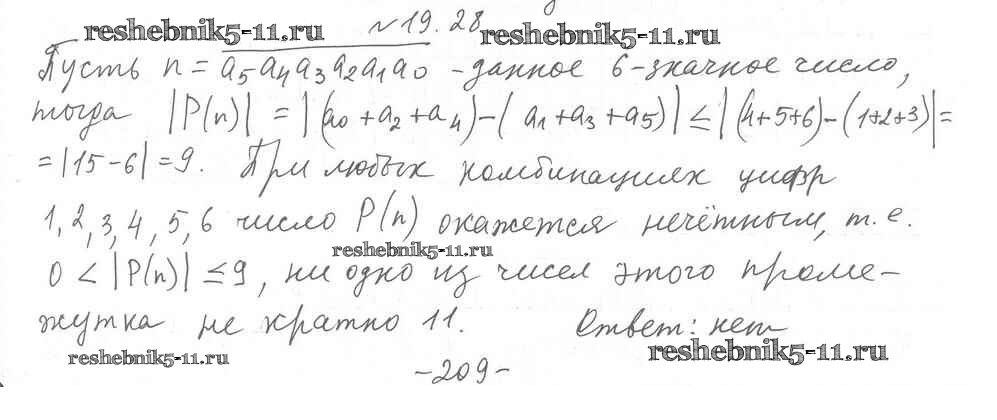 reshebnik5-11.ru №19.28 reshebnik5-11.ru
Пусть n = a5a4a3a2a1a0 - данное 6-значное число,
тогда |P(n)| = |(a0 + a2 + a4) - (a1 + a3 + a5)| ≤ |(4+5+6) - (1+2+3)| =
= |15 - 6| = 9. При любых комбинациях цифр
1, 2, 3, 4, 5, 6 число P(n) окажется нечётным, т.е.
reshebnik5-11.ru
0 < |P(n)| ≤ 9, ни одно из чисел этого проме-
жутка не кратно 11. Ответ: нет
reshebnik5-11.ru reshebnik5-11.ru
-209-